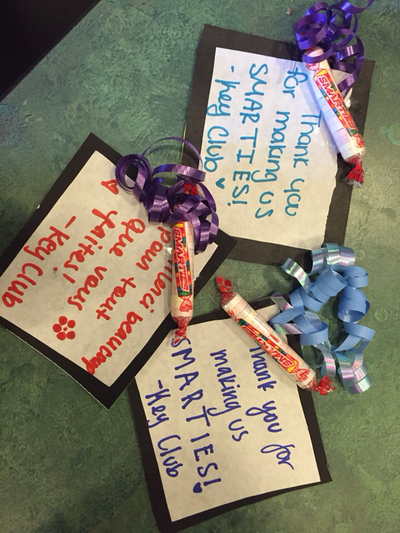 Thank you
for making us
SMARTIES!
- Key Club
SMARTIES
Merci beaucoup
pour tout
que vous
faites!
- Key Club
SMARTIES
Thank you for
making us
SMARTIES!
- Key Club
SMARTIES